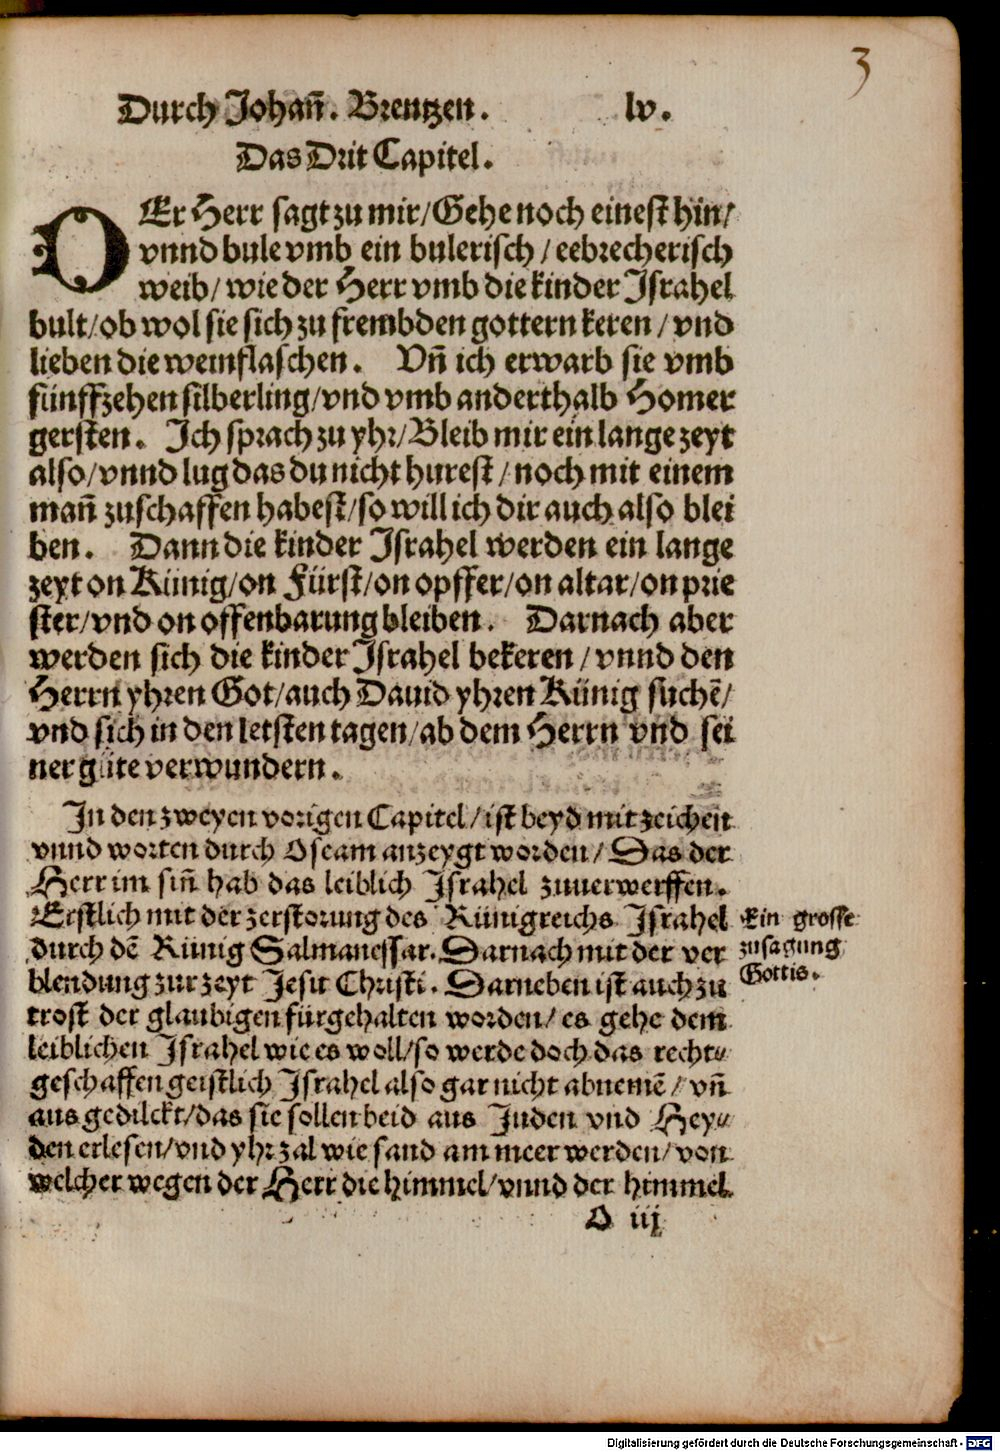 3
Durch Johañ. Brentzen. lv.
Das Drit Capitel.
DEr Herr sagt zu mir/Gehe noch einest hin/
vnnd bule vmb ein bulerisch/eebrecherisch
weib/wie der Herr vmb die kinder Israhel
bult/ob wol sie sich zu frembden gottern keren/vnd
lieben die weinflaschen. Vñ ich erwarb sie vmb
fünffzehen silberling/vnd vmb anderthalb Homer
gersten. Ich sprach zu yhr/Bleib mir ein lange zeyt
also/vnnd lug das du nicht hurest/noch mit einem
mañ zuschaffen habest/so will ich dir auch also blei
ben. Dann die kinder Israhel werden ein lange
zeyt on Künig/on Fürst/on opffer/on altar/on prie
ster/vnd on offenbarung bleiben. Darnach aber
werden sich die kinder Israhel bekeren/vnnd den
Herrn yhren Got/auch Dauid yhren Künig suchẽ/
vnd sich in den letsten tagen/ab dem Herrn vnd sei
ner güte verwundern.
In den zweyen vorigen Capitel/ist beyd mit zeichen
vnnd worten durch Oseam anzeygt worden/Das der
Herr im siñ hab das leiblich Israhel zuuerwerffen.
Erstlich mit der zerstorung des Künigreichs Israhel
durch dẽ Künig Salmanessar. Darnach mit der ver
blendung zur zeyt Jesu Christi. Darneben ist auch zu
trost der glaubigen fürgehalten worden/es gehe dem
leiblichen Israhel wie es woll/so werde doch das recht⸗
geschaffen geistlich Israhel also gar nicht abnemẽ/vñ
aus gedilckt/das sie sollen beid aus Juden vnd Hey⸗
den erlesen/vnd yhr zal wie sand am meer werden/von
welcher wegen der Herr die himmel/vnnd der himmel
Ein grosse
zusagung
Gottis.
D iij
Digitalisierung gefördert durch die Deutsche Forschungsgemeinschaft - DFG